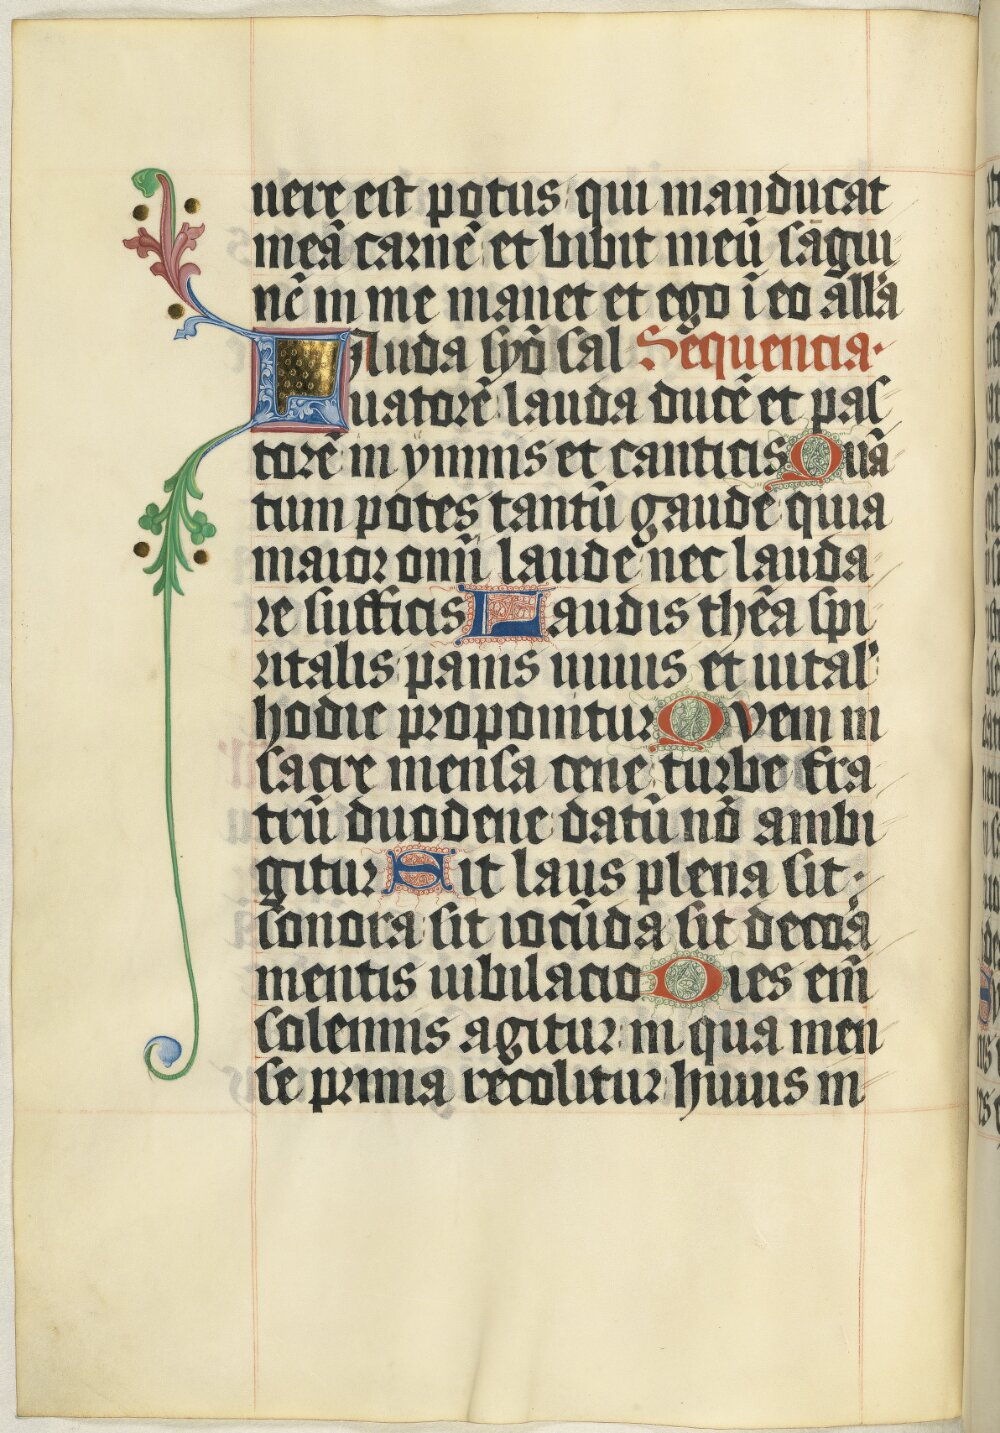 uere est potus qui manducat
meā carnē et bibit meū sāgui
nē in me manet et ego ī eo all'a
LAuda syō sal Sequencia·
uatorē lauda ducē et pas
torē in ymnis et canticis Quā
tum potes tantū gaude quia
maior omī laude nec lauda
re sufficis Laudis thēa spi
ritalis panis uiuus et uital'
hodie proponitur Qvem in
sacre mensa cene turbe fra
trū duodene datū nō ambi
gitur Sit laus plena sit·
sonora sit iocūda sit decora
mentis iubilacio Dies em̄
solemnis agitur in qua men
se prima recolitur huius in